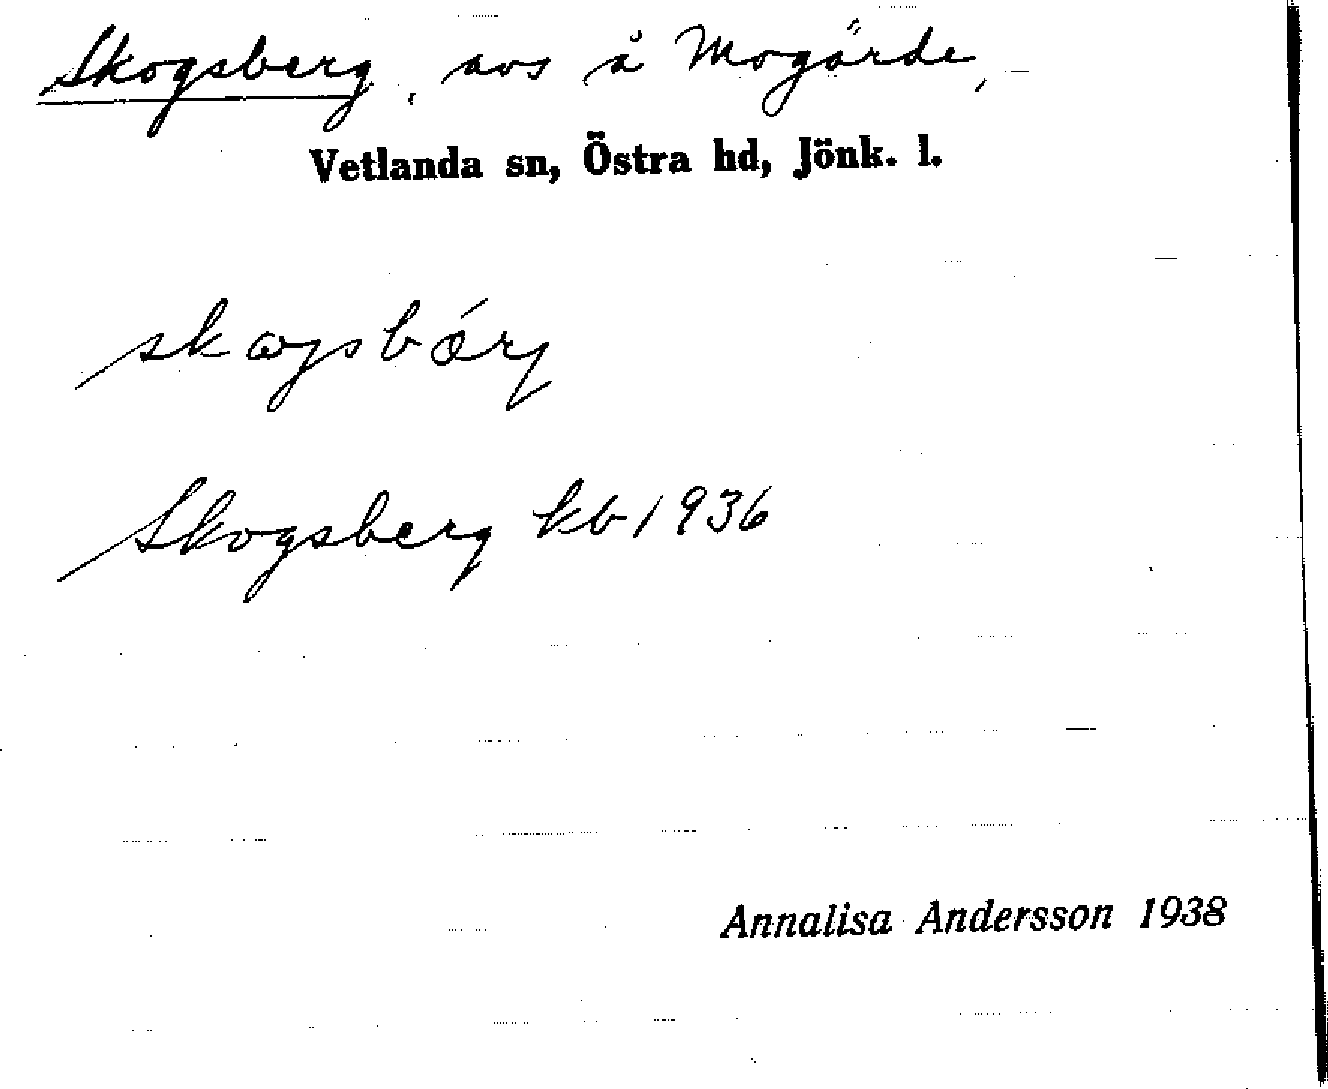 Skogsberg, avs å Mogärde,
Vetlanda sn, Östra hd, Jönk. l.
skogsbärj
Skogsberg kb 1936
Annalisa Andersson 1938